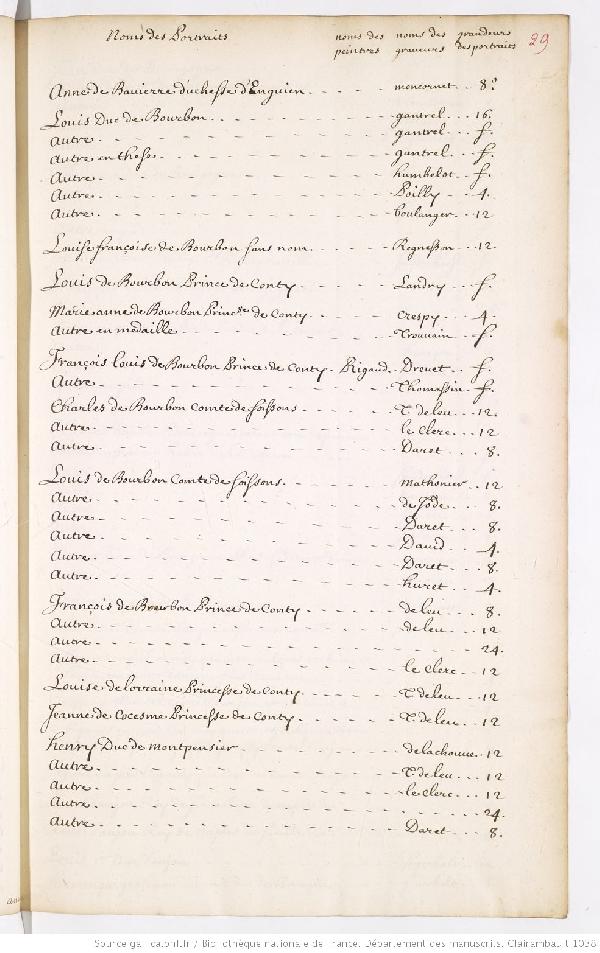 Noms des Portraits noms des peintres noms des graveurs grandeurs des portraits 29
Anne de Bavierre duchesse d'Enguien - - - - moncornet - - 8º
Louis Duc de Bourbon - - - - gantrel - - 16.
Autre - - - - gantrel - - f.
Autre en these - - - - gantrel - - f.
Autre - - - - humbelot - - f.
Autre - - - - Poilly - - 4.
Autre - - - - boulanger - - 12
Louise françoise de Bourbon sans nom - - - - Regnesson - - 12.
Louis de Bourbon Prince de Conty - - - - Landry - - f.
Marie anne de Bourbon Princsse de Conty - - - - Crespy - - 4.
Autre en medaille - - - - Trouvain - - f.
François louis de Bourbon Prince de Conty - Rigaud - Drevet - - f.
Autre - - - - Thomassin - - f.
Charles de Bourbon Comte de soissons - - - - T. de leu - - 12.
Autre - - - - le Clerc - - 12
Autre - - - - Daret - - 8.
Louis de Bourbon Comte de soissons - - - - mathonier - - 12
Autre - - - - de Jode - - 8.
Autre - - - - Daret - - 8.
Autre - - - - David - - 4.
Autre - - - - Daret - - 8.
Autre - - - - huret - - 4.
François de Bourbon Prince de Conty - - - - de leu - - 8.
Autre - - - - de leu - - 12
Autre - - - - 24.
Autre - - - - le Clerc - - 12
Louise de lorraine Princesse de Conty - - - - T. de leu - - 12
Jeanne de Cocesme Princesse de Conty - - - - T. de leu - - 12
henry Duc de montpensier - - - - 12
Autre - - - - T. de leu - - 12
Autre - - - - le Clerc - - 12
Autre - - - - 24.
Autre - - - - Daret - - 8.
Source gallica.bnf.fr / Bibliothèque nationale de France. Département des manuscrits. Clairambault 1038